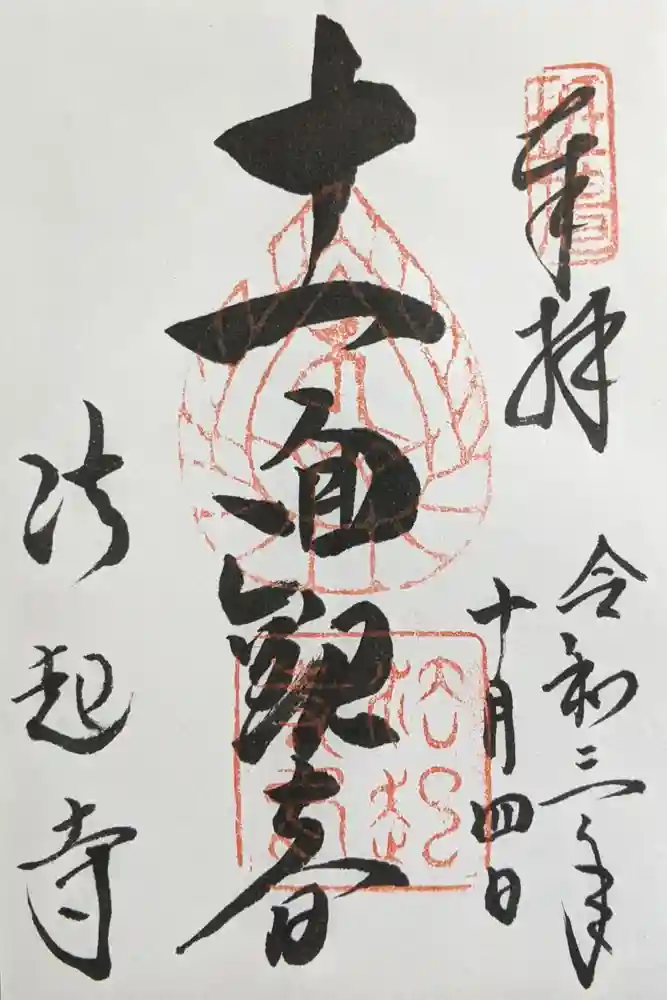 奉拝
令和三年
十月四日
十一面観音
法起寺